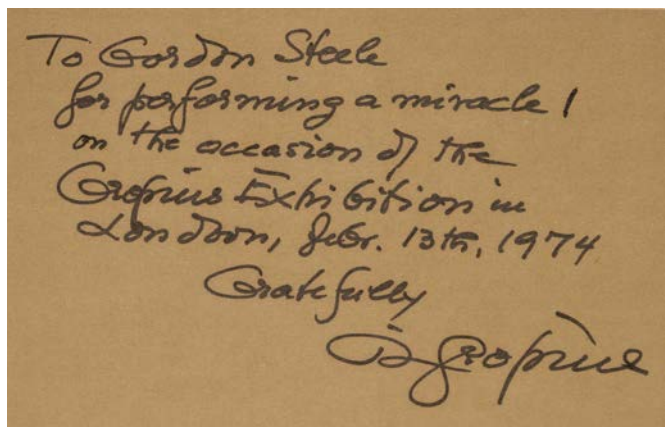 To Gordon Steele
for performing a miracle!
on the occasion of the
Gropius Exhibition in
London, Febr. 13th, 1974
Gratefully
Gropius